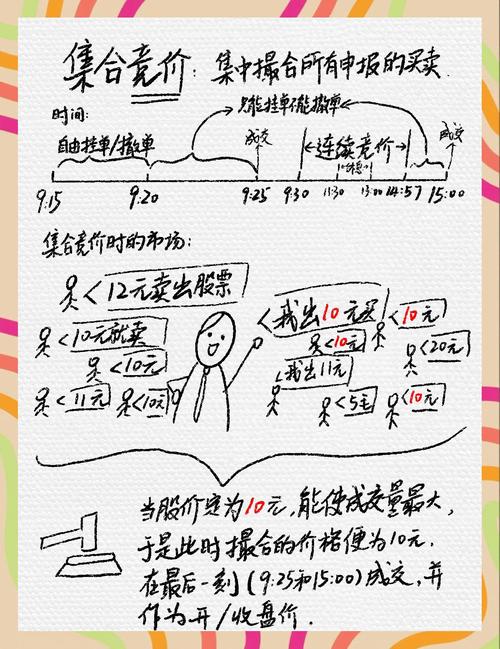 集合竞价：集中撮合所有申报的买卖.
只能挂单不能撤单
时间：
自由挂单/撤单
成交
连续竞价
成交
9:15 9:20 9:25 9:30 11:30 13:00 14:57 15:00
集合竞价时的市场：
<12元卖出股票
<10元就卖
<10元
<11元
<10元
<我出10元买
<10元
<10元
<20元
<我出11元
<5毛
<10元
当股价定为10元,能使成交量最大,
于是此时撮合的价格便为10元.
在最后一刻(9:25和15:00)成交,并
作为开/收盘价.